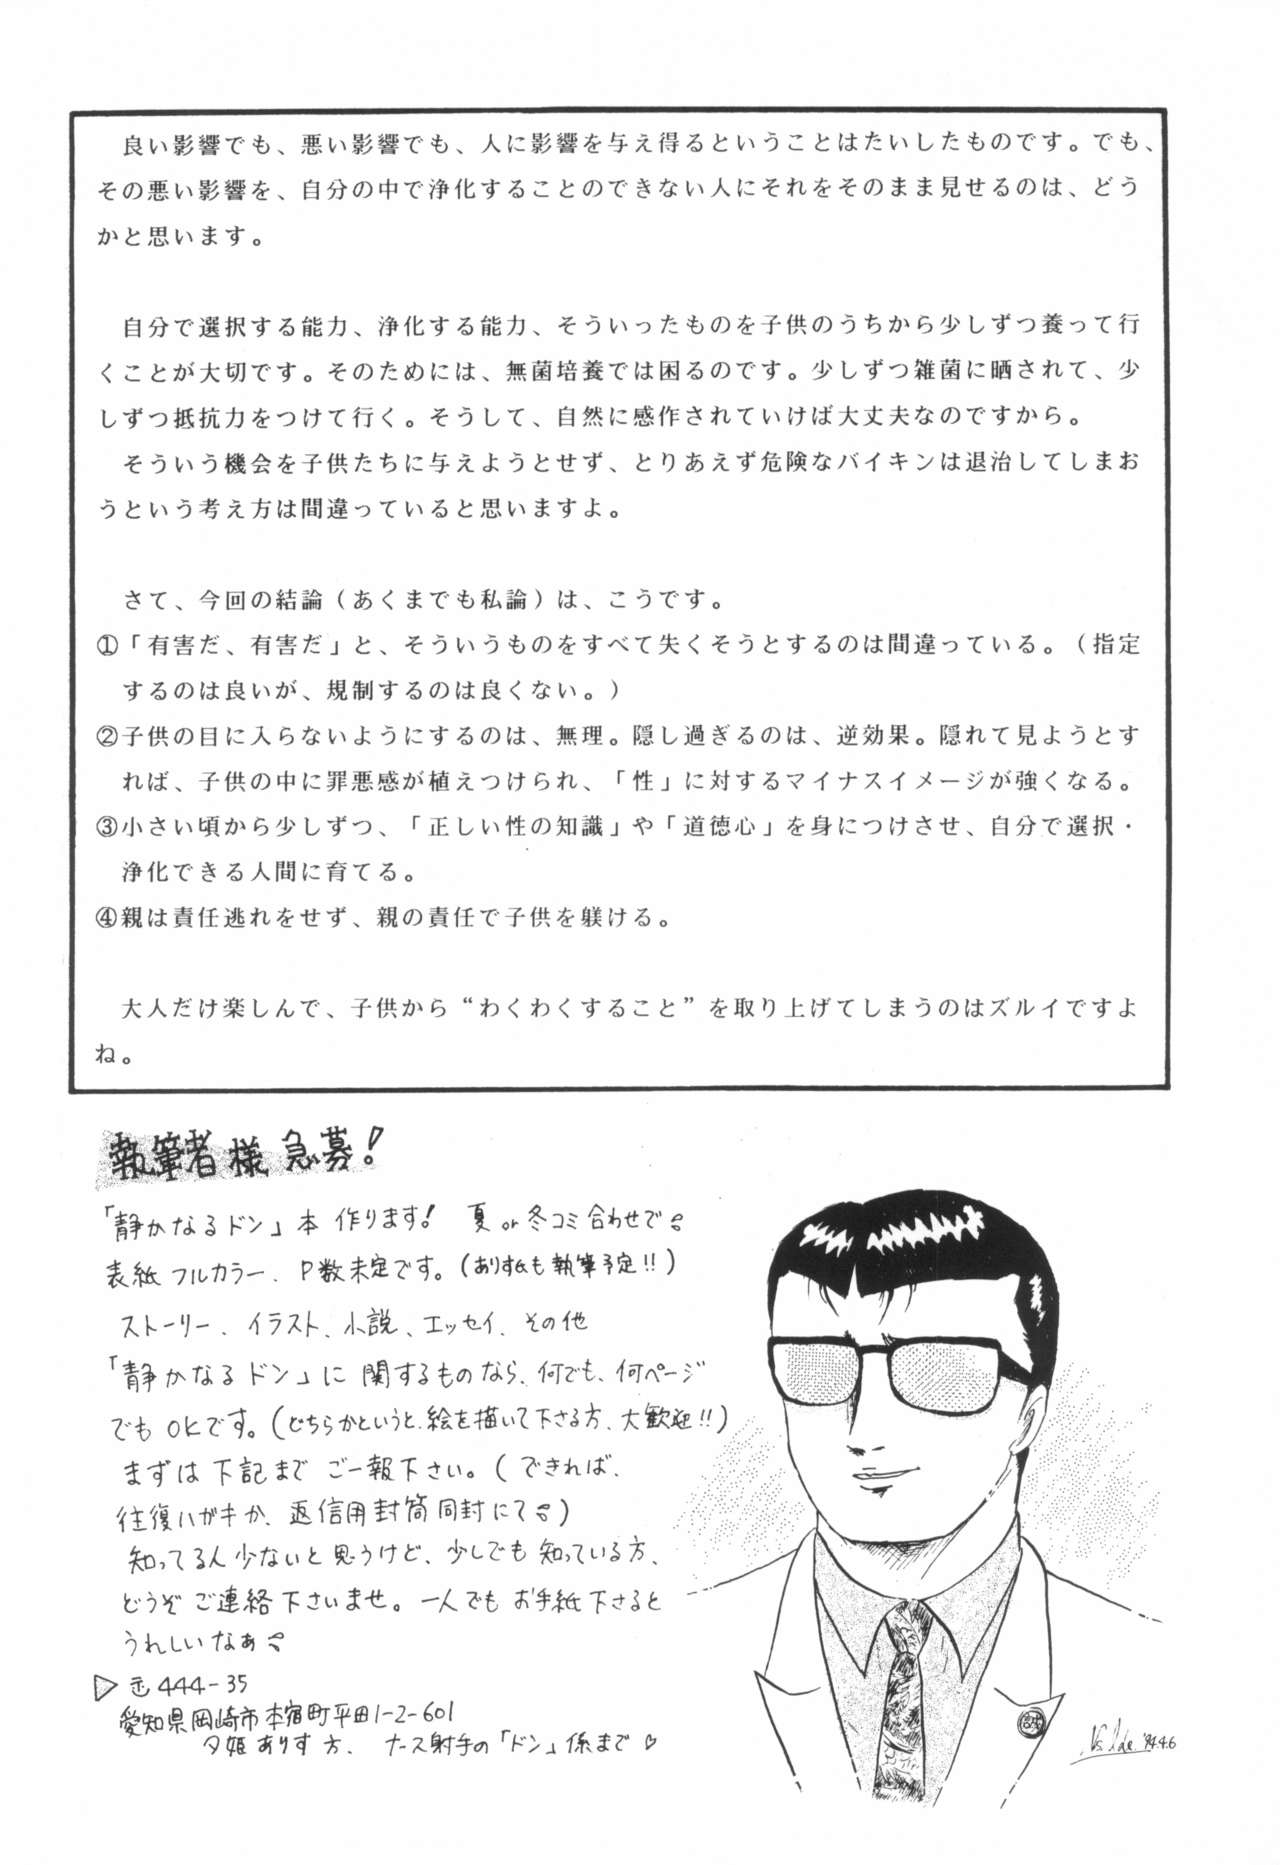 良い影響でも、悪い影響でも、人に影響を与え得るということはたいしたものです。でも、
その悪い影響を、自分の中で浄化することのできない人にそれをそのまま見せるのは、どう
かと思います。
自分で選択する能力、浄化する能力、そういったものを子供のうちから少しずつ養って行
くことが大切です。そのためには、無菌培養では困るのです。少しずつ雑菌に晒されて、少
しずつ抵抗力をつけて行く。そうして、自然に感作されていけば大丈夫なのですから。
そういう機会を子供たちに与えようとせず、とりあえず危険なバイキンは退治してしまお
うという考え方は間違っていると思いますよ。
さて、今回の結論（あくまでも私論）は、こうです。
①「有害だ、有害だ」と、そういうものをすべて失くそうとするのは間違っている。（指定
するのは良いが、規制するのは良くない。）
②子供の目に入らないようにするのは、無理。隠し過ぎるのは、逆効果。隠れて見ようとす
れば、子供の中に罪悪感が植えつけられ、「性」に対するマイナスイメージが強くなる。
③小さい頃から少しずつ、「正しい性の知識」や「道徳心」を身につけさせ、自分で選択・
浄化できる人間に育てる。
④親は責任逃れをせず、親の責任で子供を躾ける。
大人だけ楽しんで、子供から“わくわくすること”を取り上げてしまうのはズルイですよ
ね。
執筆者様急募！
「静かなるドン」本 作ります！ 夏or冬コミ合わせで♪
表紙フルカラー、P数未定です。（ありす氏も執筆予定!!）
ストーリー、イラスト、小説、エッセイ、その他
「静かなるドン」に関するものなら、何でも、何ページ
でもOKです。（どちらかというと、絵を描いて下さる方、大歓迎!!）
まずは下記までご一報下さい。（できれば、
往復ハガキか、返信用封筒同封にて♪）
知ってる人少ないと思うけど、少しでも知っている方、
どうぞご連絡下さいませ。一人でもお手紙下さると
うれしいなぁ♪
▷〒444-35
愛知県岡崎市本宿町平田1-2-601
夕姫ありす方、ナース射手の「ドン」係まで♡
誠
'94.4.6